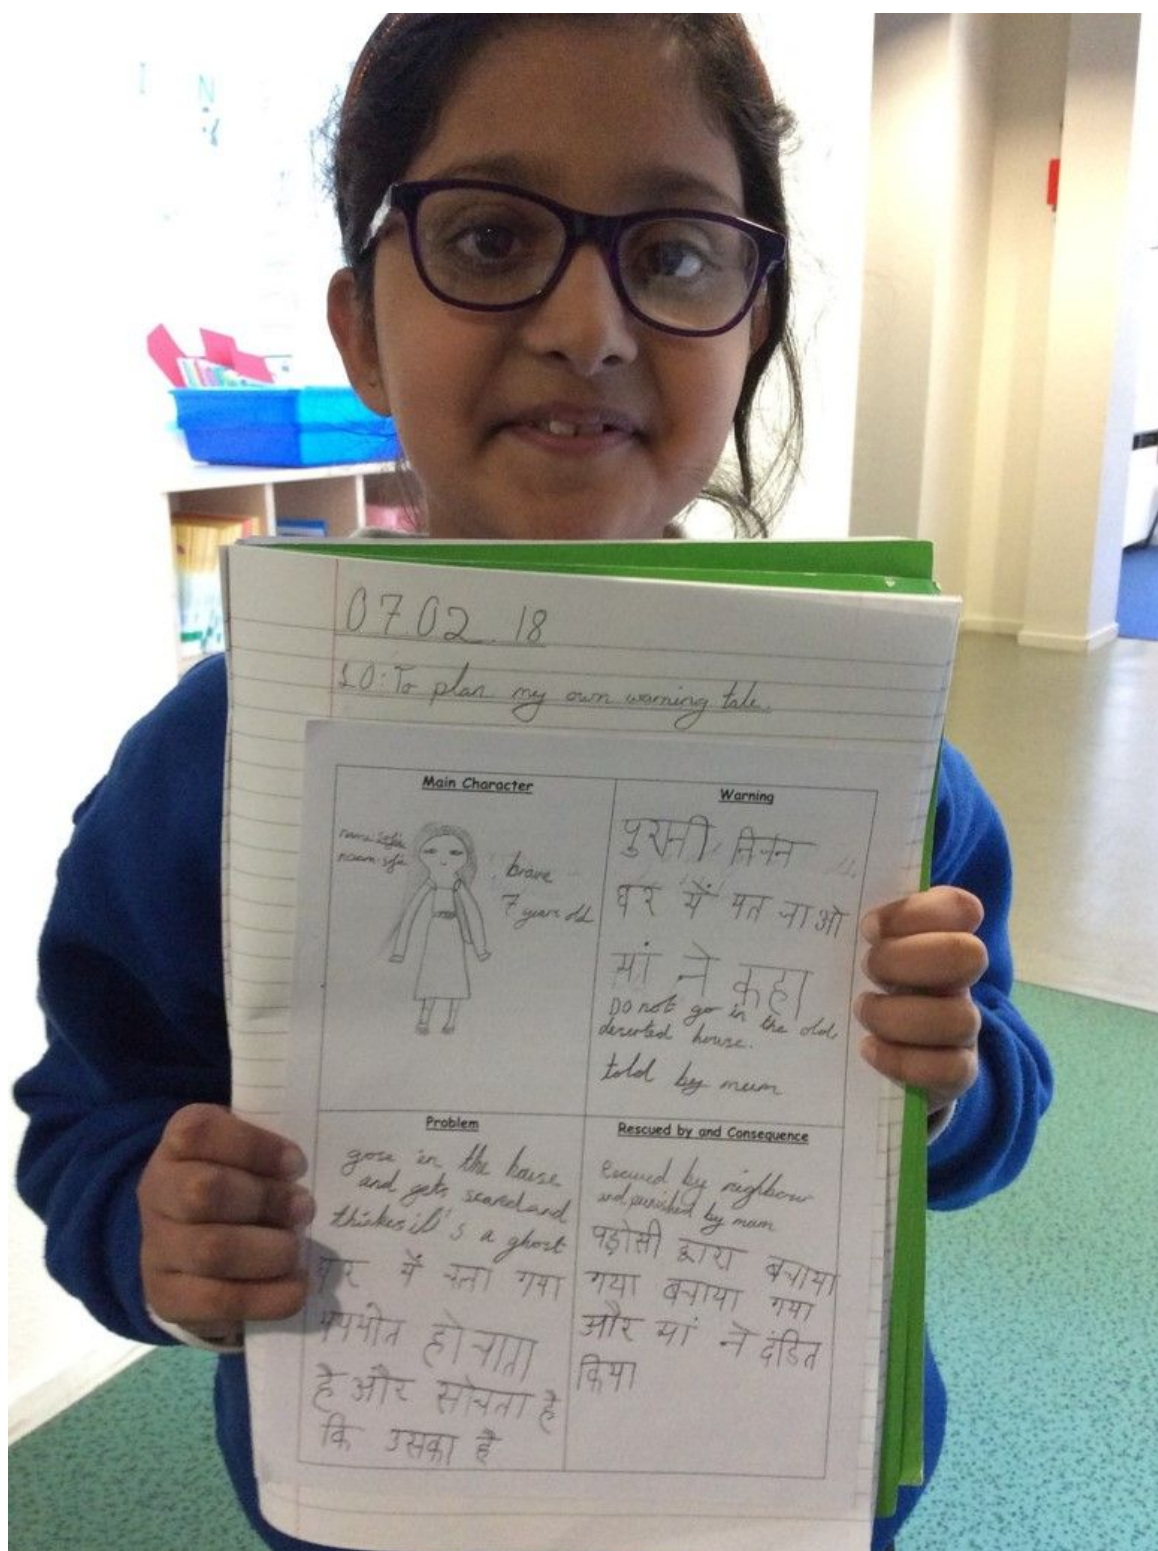 07.02.18
LO: To plan my own warning tale.
Main Character
name: sofia
brave
7 years old
Warning
पुरानी निर्जन
घर में मत जाओ
मां ने कहा
Do not go in the old
deserted house.
told by mum
Problem
gose in the house
and gets scared and
thinkes it's a ghost
घर में चला गया
भयभीत हो जाता
है और सोचता है
कि उसका है
Rescued by and Consequence
by nighbour
and punished by mum
पड़ोसी द्वारा बचाया
गया बचाया गया
और मां ने दंडित
किया